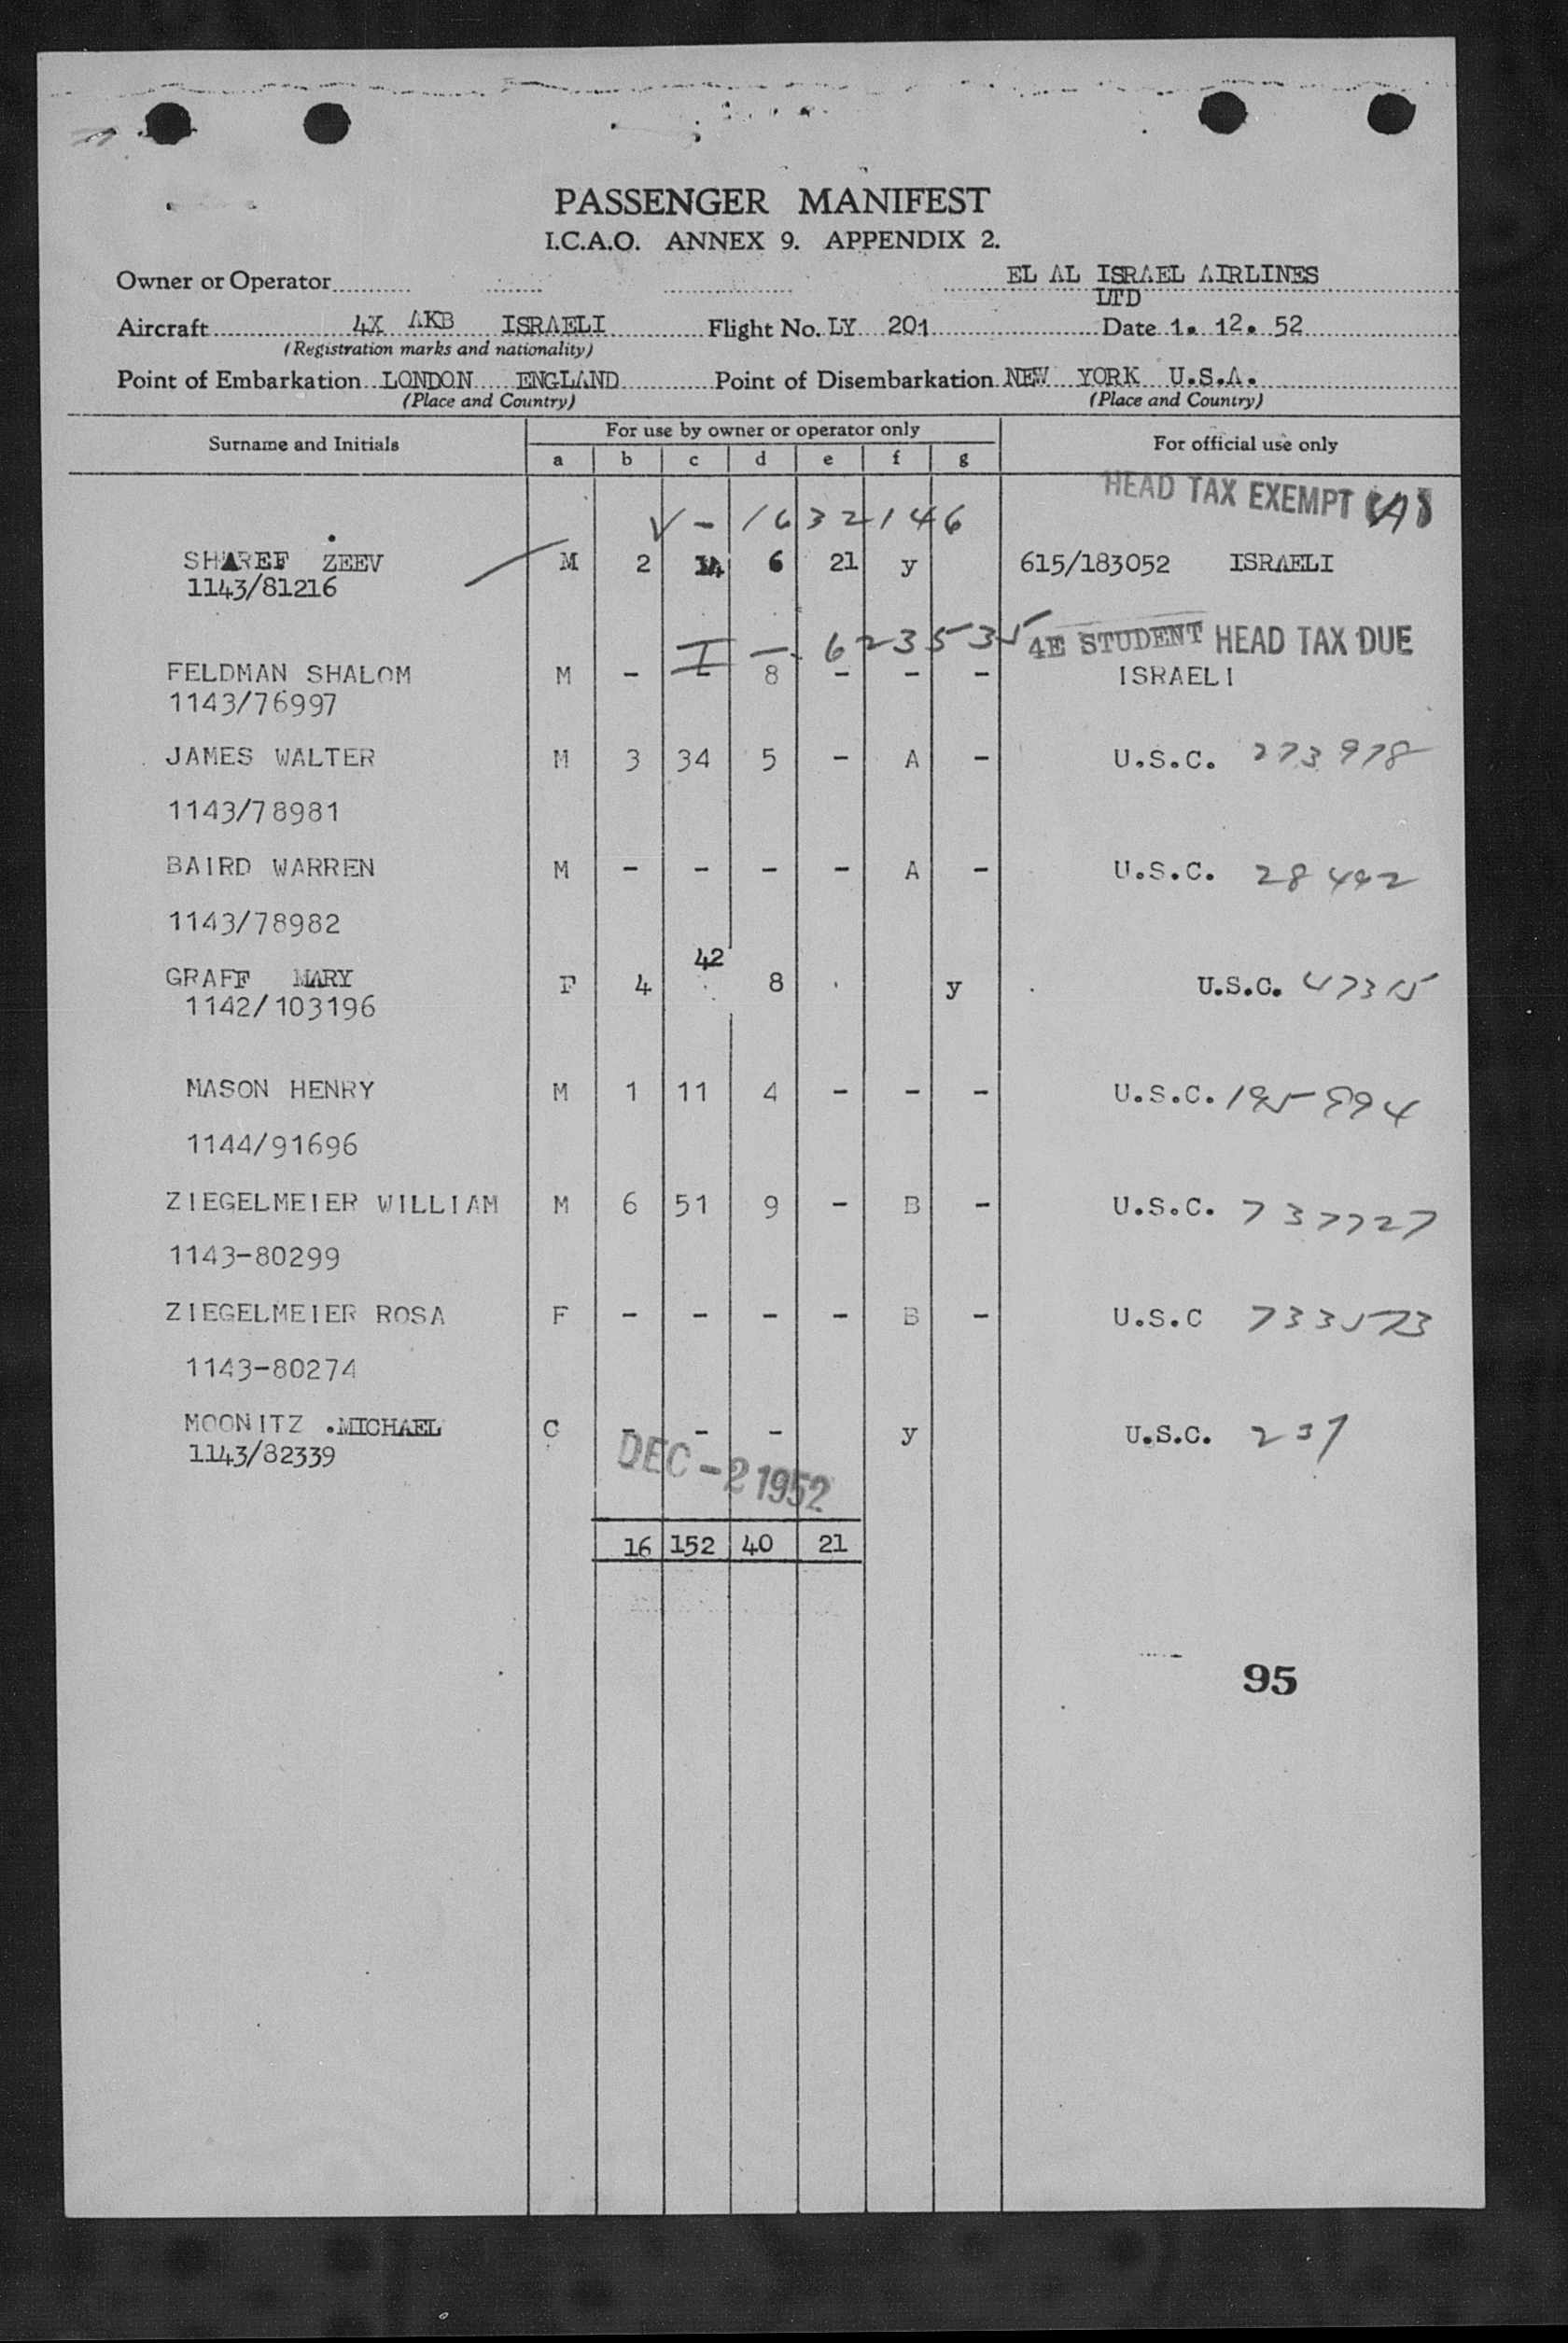 PASSENGER MANIFEST
I.C.A.O. ANNEX 9. APPENDIX 2.
Owner or Operator EL AL ISRAEL AIRLINES
LTD
Aircraft 4X AKB ISRAELI Flight No. LY 201 Date 1. 12. 52
(Registration marks and nationality)
Point of Embarkation LONDON ENGLAND Point of Disembarkation NEW YORK U.S.A.
(Place and Country) (Place and Country)
Surname and Initials For use by owner or operator only For official use only
a b c d e f g
HEAD TAX EXEMPT
V - 1632146
SHAREF ZEEV M 2 14 6 21 y 615/183052 ISRAELI
1143/81216
I - 623535 4E STUDENT HEAD TAX DUE
FELDMAN SHALOM M - - 8 - - - ISRAELI
1143/76997
JAMES WALTER M 3 34 5 - A - U.S.C. 273978
1143/78981
BAIRD WARREN M - - - - A - U.S.C. 28442
1143/78982
42
GRAFF MARY F 4 8 y U.S.C. 47315
1142/103196
MASON HENRY M 1 11 4 - - - U.S.C. 195894
1144/91696
ZIEGELMEIER WILLIAM M 6 51 9 - B - U.S.C. 737727
1143-80299
ZIEGELMEIER ROSA F - - - - B - U.S.C 733573
1143-80274
MOONITZ .MICHAEL C - - - y U.S.C. 237
1143/82339
DEC -2 1952
16 152 40 21
95